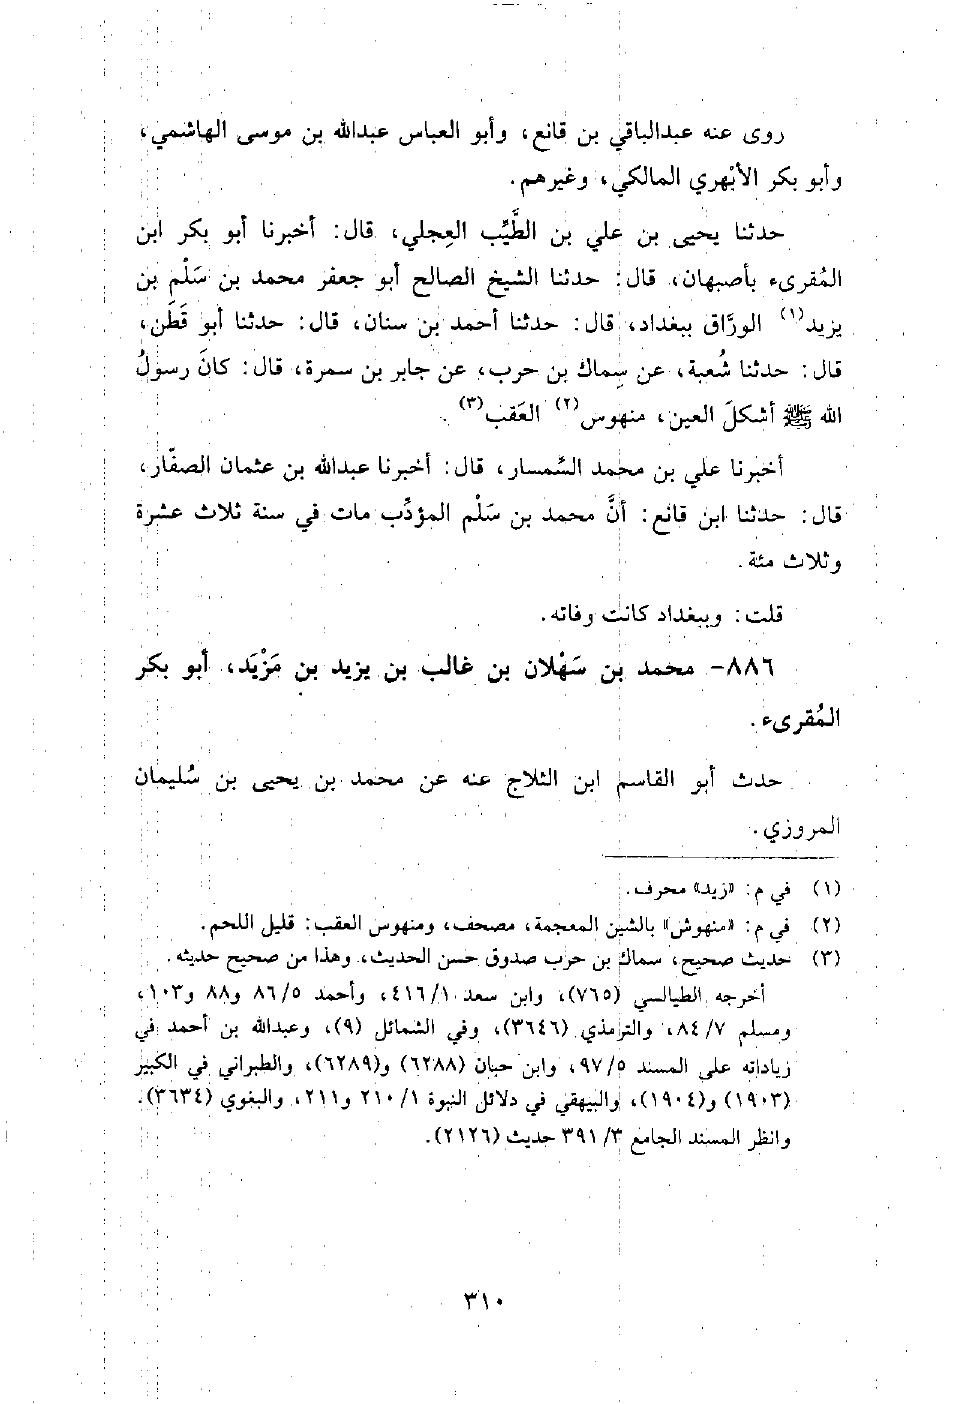 روى عنه عبدالباقي بن قانع، وأبو العباس عبدالله بن موسى الهاشمي،
وأبو بكر الأبْهري المالكي، وغيرهم.
حدثنا يحيى بن علي بن الطَّيِّب العِجلي، قال: أخبرنا أبو بكر ابن
المُقرىء بأصبهان، قال: حدثنا الشيخ الصالح أبو جعفر محمد بن سَلْم بن
يزيد(١) الورَّاق ببغداد، قال: حدثنا أحمد بن سنان، قال: حدثنا أبو قَطَن،
قال: حدثنا شُعبة، عن سِماك بن حرب، عن جابر بن سمرة، قال: كانَ رسولُ
الله ﷺ أشكلَ العين، منهوس(٢) العَقب(٣).
أخبرنا علي بن محمد السِّمسار، قال: أخبرنا عبدالله بن عثمان الصفَّار،
قال: حدثنا ابن قانع: أنَّ محمد بن سَلْم المؤدِّب مات في سنة ثلاث عشرة
وثلاث مئة.
قلت: وببغداد كانت وفاته.
٨٨٦- محمد بن سَهْلان بن غالب بن يزيد بن مَزْيَد، أبو بكر
المُقرىء.
حدث أبو القاسم ابن الثلاج عنه عن محمد بن يحيى بن سُليمان
المروزي.
(١) في م: «زيد» محرف.
(٢) في م: «منهوش» بالشين المعجمة، مصحف، ومنهوس العقب: قليل اللحم.
(٣) حديث صحيح، سماك بن حرب صدوق حسن الحديث، وهذا من صحيح حديثه.
أخرجه الطيالسي (٧٦٥)، وابن سعد ١/ ٤١٦، وأحمد ٥/ ٨٦ و٨٨ و١٠٣،
ومسلم ٧/ ٨٤، والترمذي (٣٦٤٦)، وفي الشمائل (٩)، وعبدالله بن أحمد في
زياداته على المسند ٥/ ٩٧، وابن حبان (٦٢٨٨) و(٦٢٨٩)، والطبراني في الكبير
(١٩٠٣) و(١٩٠٤)، والبيهقي في دلائل النبوة ١/ ٢١٠ و٢١١، والبغوي (٣٦٣٤).
وانظر المسند الجامع ٣/ ٣٩١ حديث (٢١٢٦).
٣١٠